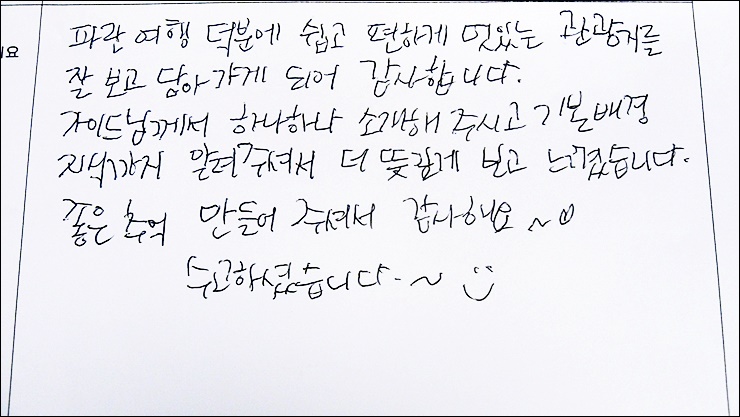 파란 여행 덕분에 쉽고 편하게 멋있는 관광지를
요
잘 보고 담아가게 되어 감사합니다.
가이드님께서 하나하나 소개해 주시고 기본배경
지식까지 알려주셔서 더 뜻깊게 보고 느꼈습니다.
좋은 추억 만들어 주셔서 감사해요~♡
수고하셨습니다.~ :)